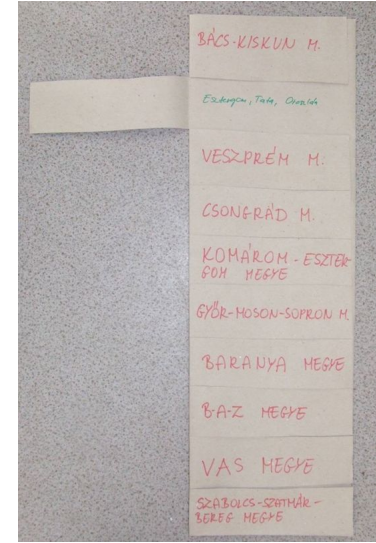 BÁCS-KISKUN M.
Esztergom, Tata, Oroszlány
VESZPRÉM M.
CSONGRÁD M.
KOMÁROM - ESZTER-
GOM MEGYE
GYŐR-MOSON-SOPRON M.
BARANYA MEGYE
B-A-Z MEGYE
VAS MEGYE
SZABOLCS-SZATMÁR-
BEREG MEGYE